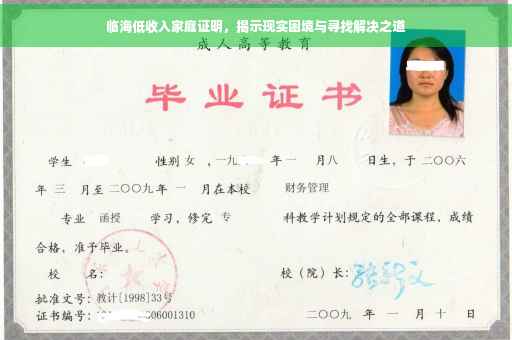 临海低收入家庭证明，揭示现实困境与寻找解决之道
成人高等教育
毕业证书
学生 性别 女 ，一九 年 一 月八 日生，于 二〇〇六
年 三 月至 二〇〇九 年 一 月在本校 财务管理
专业 函授 学习，修完 专 科教学计划规定的全部课程，成绩
合格，准予毕业。
校 名： 校（院）长：
批准文号：教计[1998]33号
证书编号： 06001310 二〇〇九 年 一 月 十 日